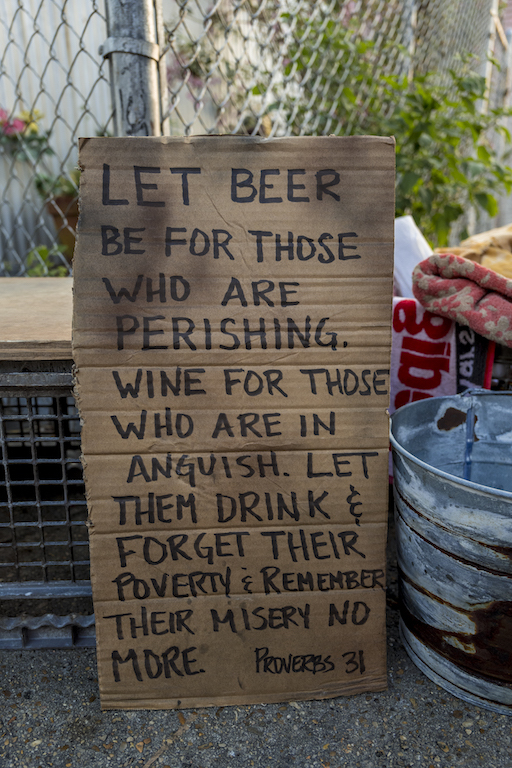 LET BEER
BE FOR THOSE
WHO ARE
PERISHING.
WINE FOR THOSE
WHO ARE IN
ANGUISH. LET
THEM DRINK &
FORGET THEIR
POVERTY & REMEMBER
THEIR MISERY NO
MORE. PROVERBS 31